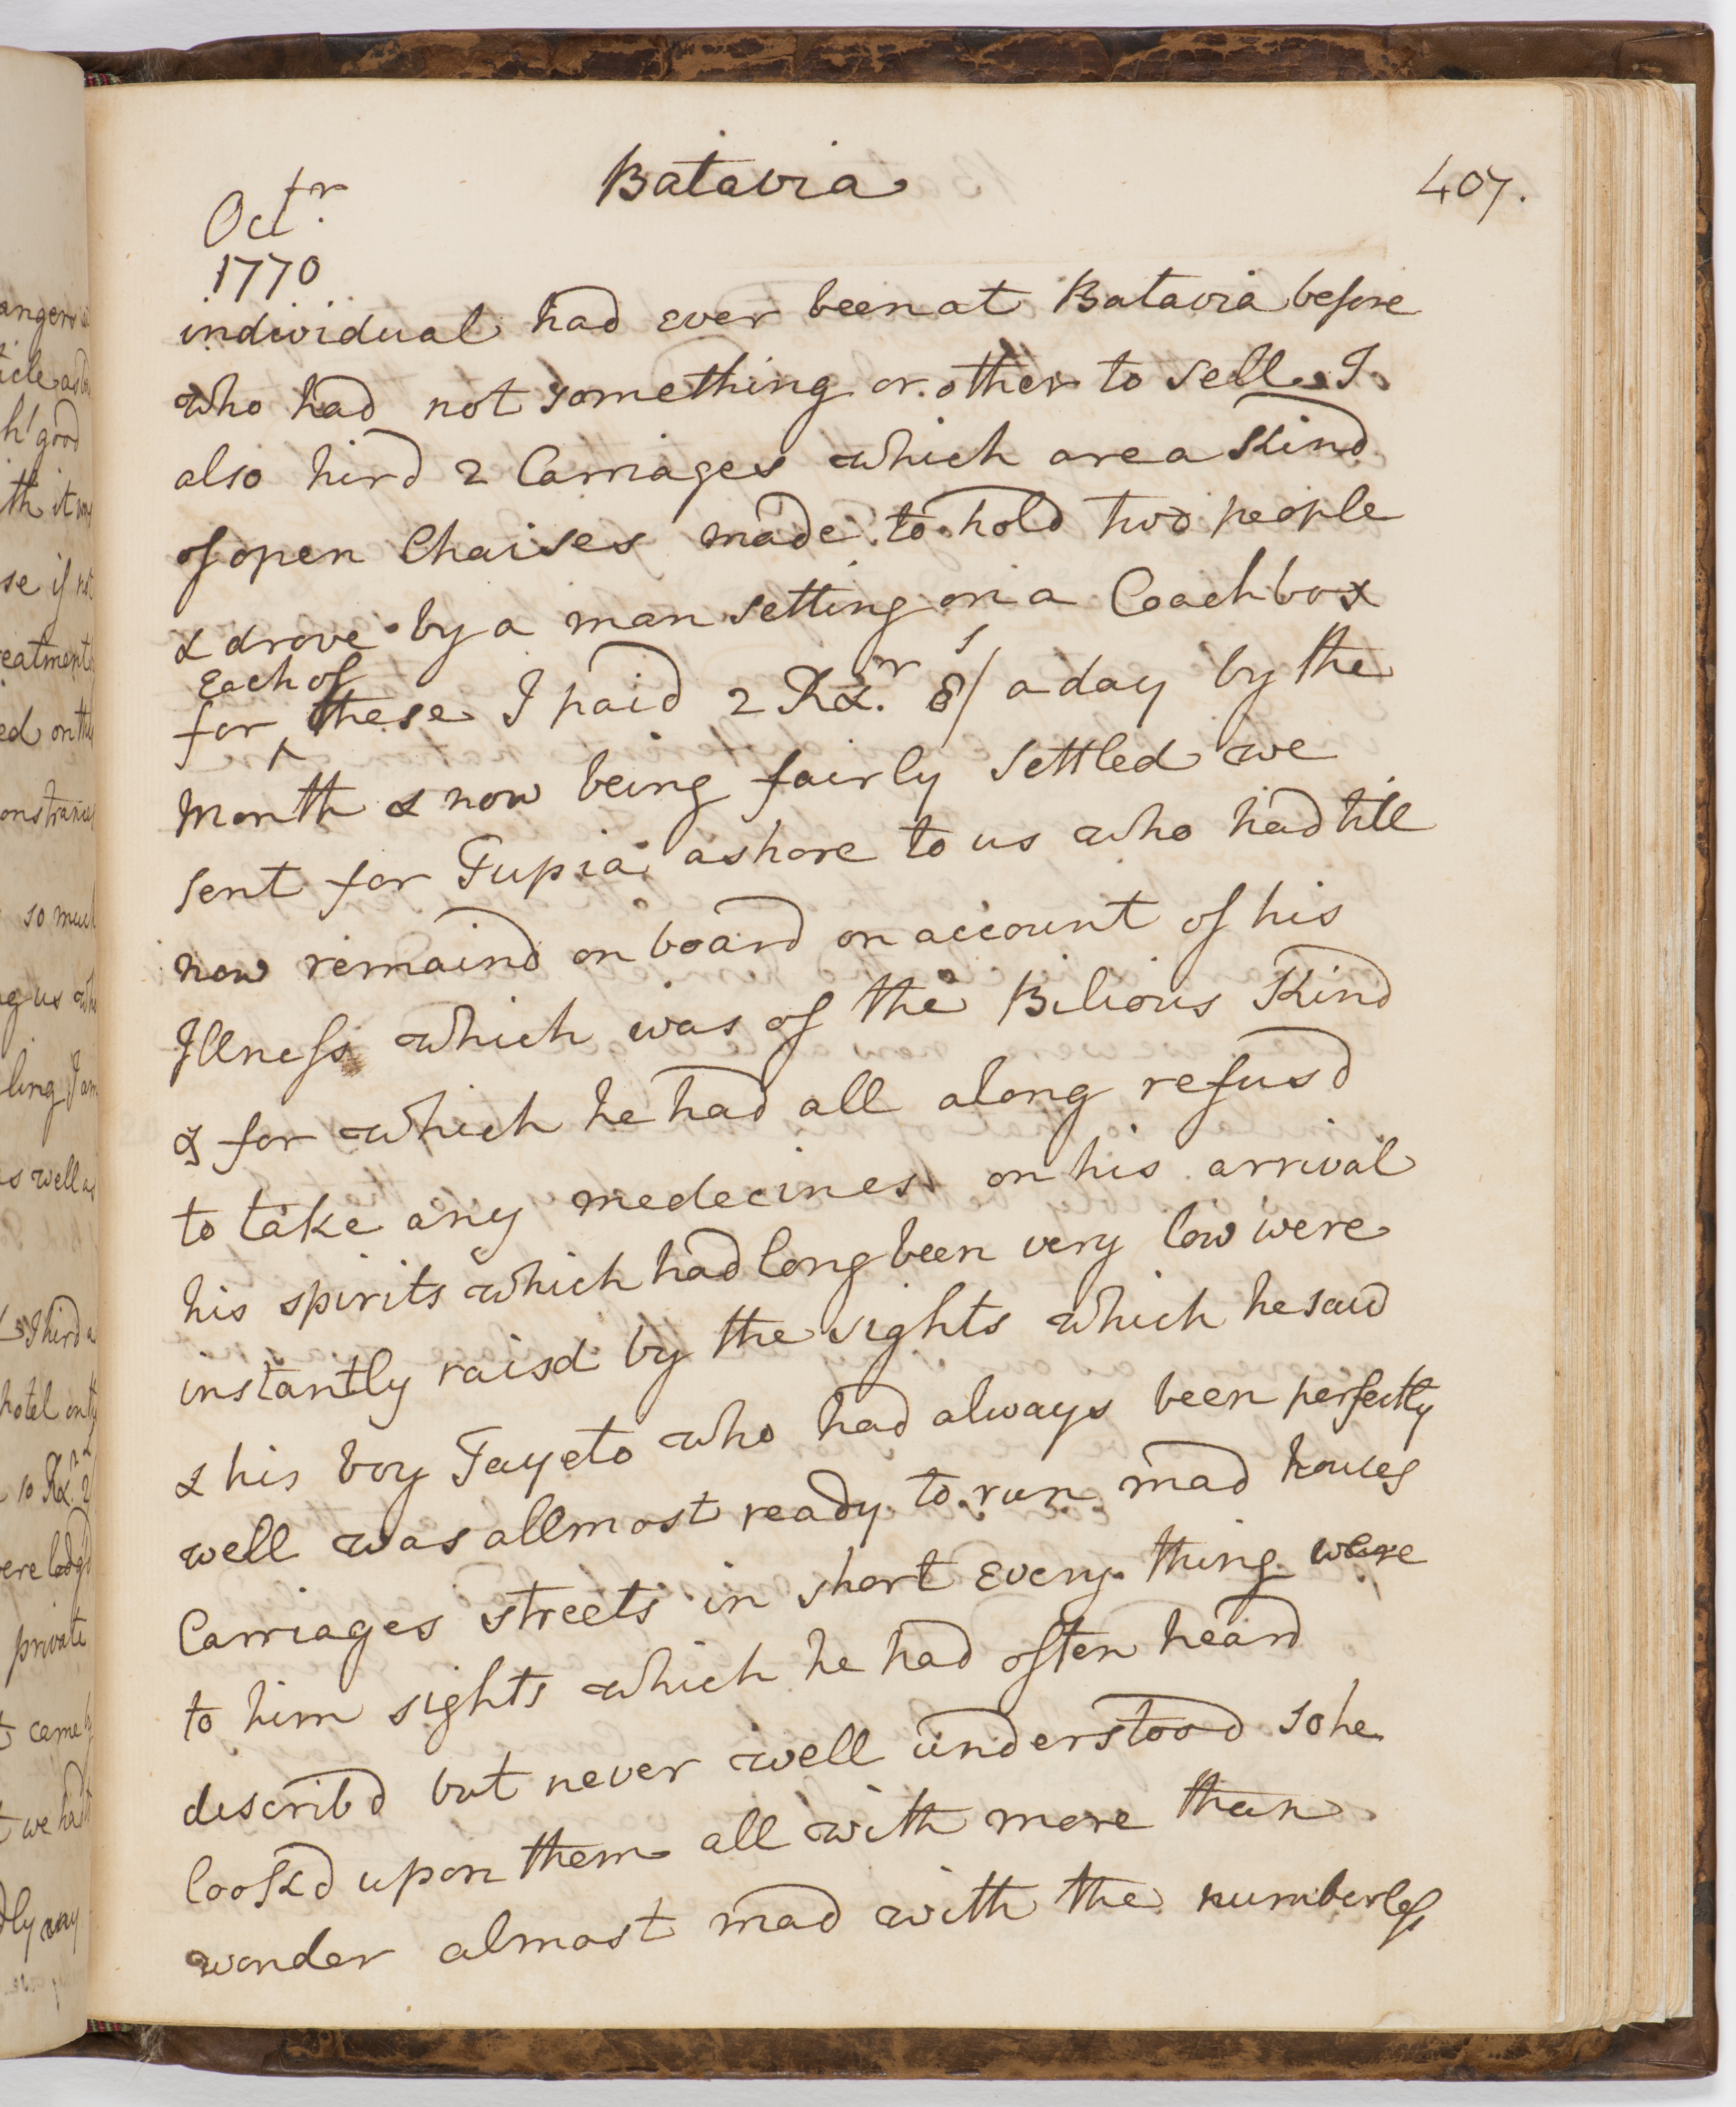 Batavia
407.
Octr.
1770
individual had ever been at Batavia before
who had not something or other to sell. I
also hird 2 Carriages which are a Kind
of open Chaises made to hold two people
& drove by a man setting on a Coachbox
Each of
for ^ these I paid 2 Rxr. 8s/ a day by the
Month & now being fairly settled we
sent for Tupia ashore to us who had till
now remaind on board on account of his
Illness which was of the Bilious Kind
& for which he had all along refusd
to take any medecines on his arrival
his spirits which had long been very low were
instantly raisd by the sights which he saw
& his boy Tayeto who had always been perfectly
well was allmost ready to run mad houses
Carriages streets in short every thing were
to him sights which he had often heard
describd but never well understood so he
lookd upon them all with more than
wonder almost mad with the numberless